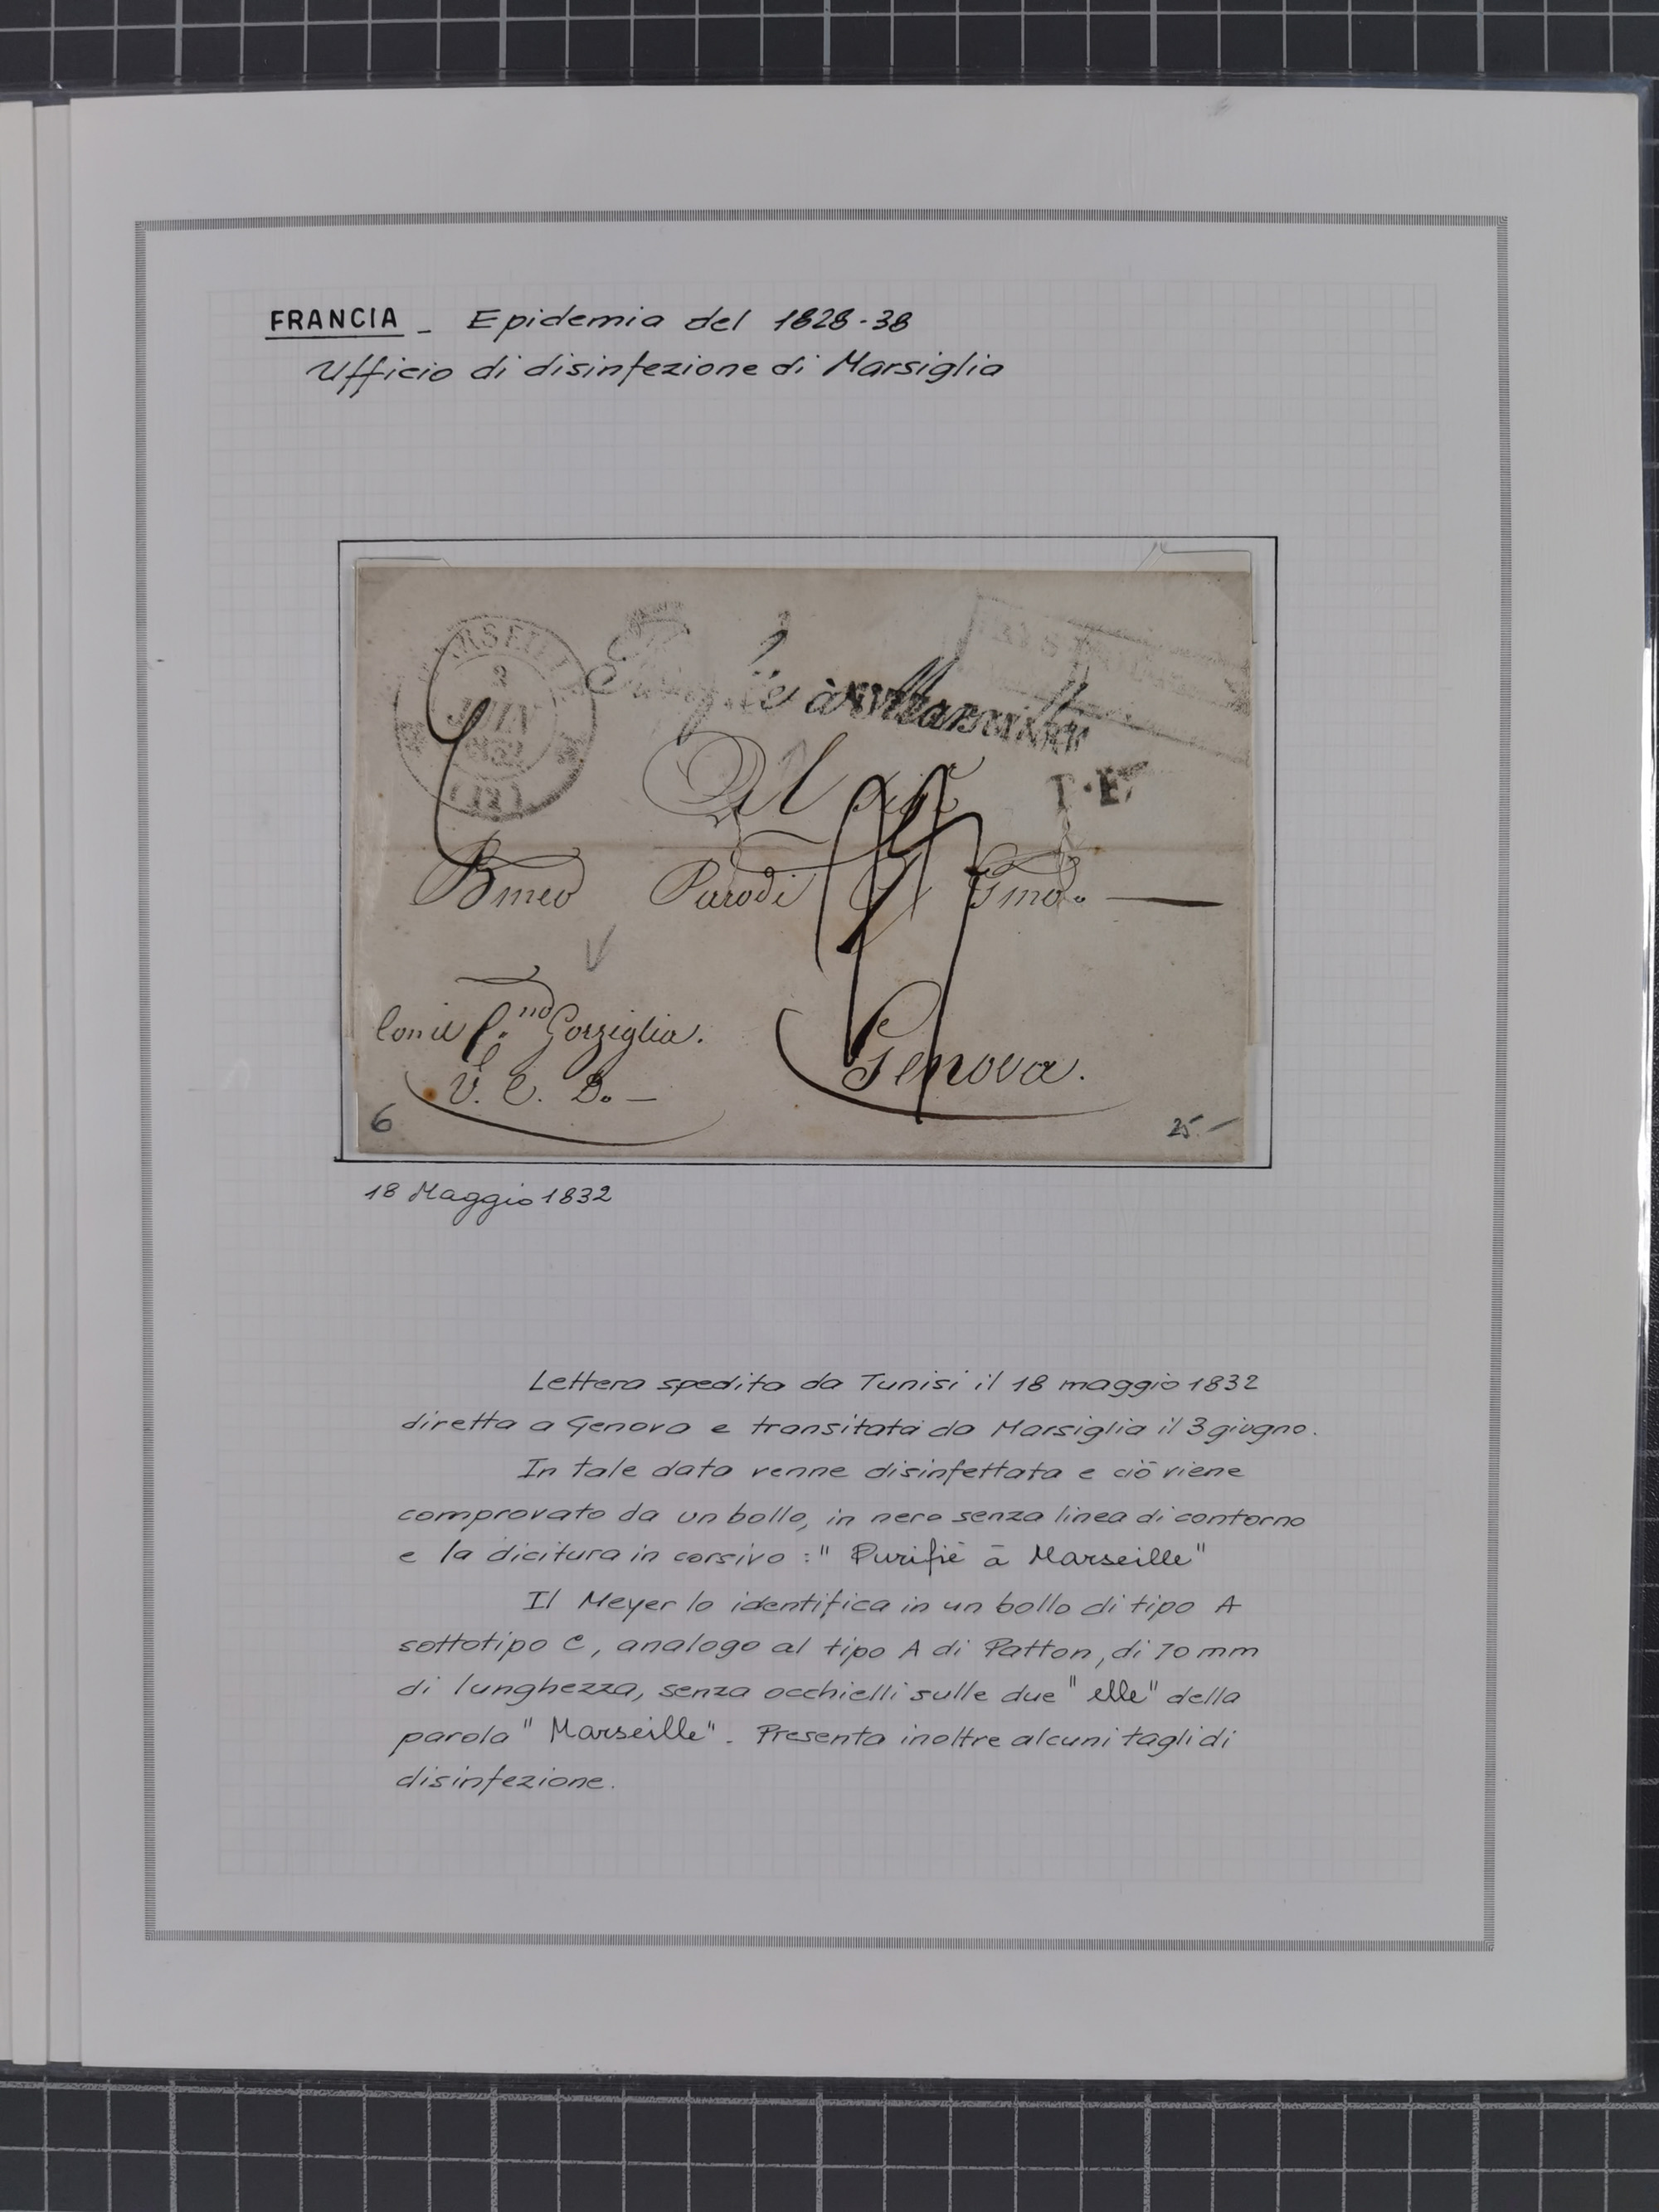 FRANCIA - Epidemia del 1828-38
Ufficio di disinfezione di Marsiglia
MARSEILLE
3
JUIN
1832
(12)
Purifié à Marseille
Al Sig.
T.E
Bmeo Parodi q Gmo. —
Con il C.no Gorziglia.
V. C. D. —
Genova.
6
25.-
18 Maggio 1832
Lettera spedita da Tunisi il 18 maggio 1832
diretta a Genova e transitata da Marsiglia il 3 giugno.
In tale data venne disinfettata e ciò viene
comprovato da un bollo, in nero senza linea di contorno
e la dicitura in corsivo : " Purifié à Marseille"
Il Meyer lo identifica in un bollo di tipo A
sottotipo C, analogo al tipo A di Patton, di 70 mm
di lunghezza, senza occhielli sulle due "elle" della
parola "Marseille". Presenta inoltre alcuni tagli di
disinfezione.